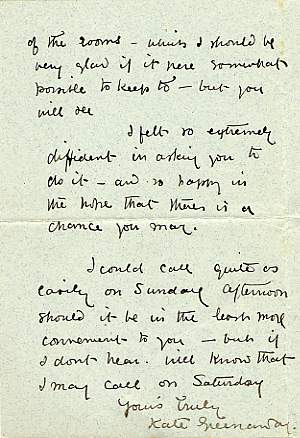 of the rooms – which I should be
very glad if it were somewhat
possible to keep to – but you
will see
I felt so extremely
diffident in asking you to
do it – and so happy in
the hope that there is a
chance you may.
I could call quite as
easily on Sunday afternoon
should it be in the least more
convenient to you – but if
I dont hear. will know that
I may call on Saturday
Yours truly
Kate Greenaway.